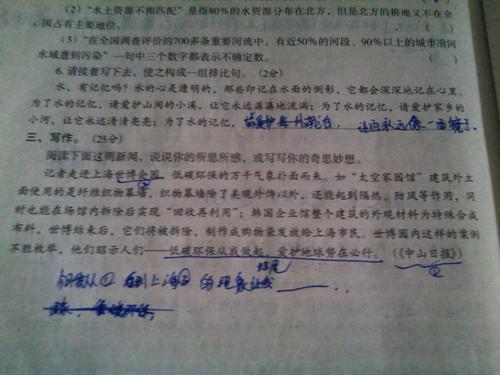 (2)“水土资源不相匹配”是指80%的水资源分布在北方,但是北方的耕地又不在全
国占有主要地位。 ( )
(3)“在全国调查评价的700多条重要河流中,有近50%的河段,90%以上的城市沿河
水域遭到污染”一句中三个数字都表示不确定数。 ( )
6. 请接着写下去,使之构成一组排比句。(2分)
水,有记忆吗?水的心是透明的,那些印记在水面的倒影,它都会深深地记在心里,
为了水的记忆,请爱护山间的小溪,让它永远潺潺地流淌;为了水的记忆,请爱护家乡的
小河,让它永远清清亮亮;为了水的记忆,请爱护每片湖泊, 让它永远像一面镜子.
三、写作。(25分)
阅读下面这则新闻,说说你的所思所感,或写写你的奇思妙想。
记者走进上海世博会园,低碳环保的万千气象扑面而来。如“太空家园馆”建筑外立
面使用的是纤维织物幕墙,织物幕墙除了美观外饰以外,还能起到隔热、防风等作用,同
时也能在场馆内拆除后实现“回收再利用”;韩国企业馆整个建筑的外观材料为特殊合成
布料,世博结束后,它们将被拆除,制作成购物袋发放给上海市民。世博园内这样的案例
不胜枚举,他们昭示人们——低碳环保从我做起,爱护地球势在必行。(《中山日报》)
② ①
从① 看到上海② 的现象让我 ——..